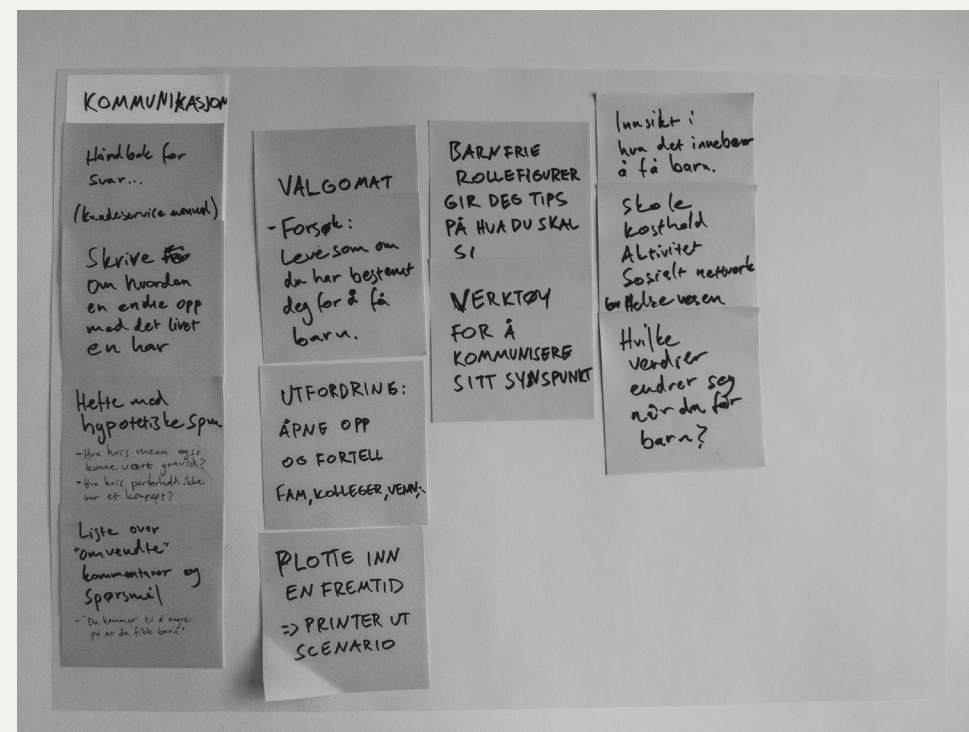 KOMMUNIKASJON
Håndbok for
svar...
(kundeservice manual)
Skrive
om hvordan
en endte opp
med det livet
en har
Hefte med
hypotetiske spm
- Hva hvis menn også
kunne vært gravid?
- Hva hvis parforhold ikke
var et konsept?
Liste over
"omvendte"
kommentarer og
spørsmål
- "Du kommer til å angre
på at du fikk barn"
VALGOMAT
- Forsøk:
Leve som om
du har bestemt
deg for å få
barn.
UTFORDRING:
ÅPNE OPP
OG FORTELL
FAM, KOLLEGER, VENN,..
PLOTTE INN
EN FREMTID
=> PRINTER UT
SCENARIO
BARNFRIE
ROLLEFIGURER
GIR DEG TIPS
PÅ HVA DU SKAL
SI
VERKTØY
FOR Å
KOMMUNISERE
SITT SYNSPUNKT
Innsikt i
hva det innebærer
å få barn.
Skole
kosthold
Aktivitet
Sosialt nettverk
Helsevesen
Hvilke
verdier
endrer seg
når du får
barn?